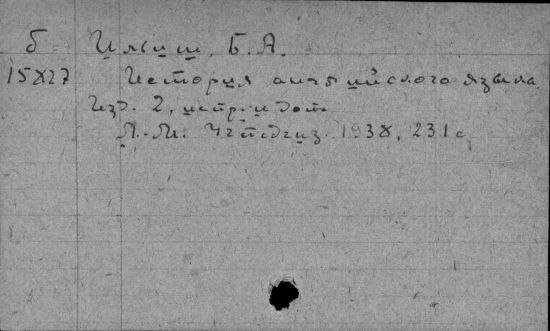 б Ильиш, Б. А.
15827 История английского языка.
Изд. 2, испр. и доп.
Л.-М. Учпедгиз. 1938, 231 с.